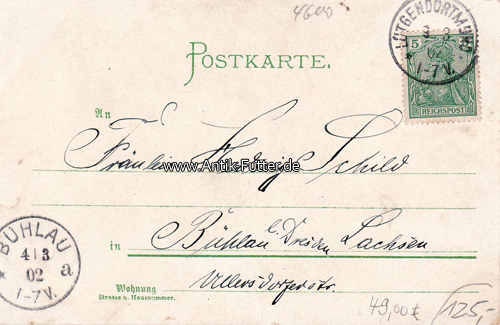 4600
POSTKARTE.
LÜTGENDORTMUND
3 3
02
1-7V.
5
REICHSPOST
An
Fräulein Hedwig Schild
www.Antik-Futter.de
in Bühlau b. Dresden Sachsen
Wohnung Ullersdorferstr.
Strasse u. Hausnummer.
BÜHLAU
4 3
02 a
1-7V.
49,00€ 125,-